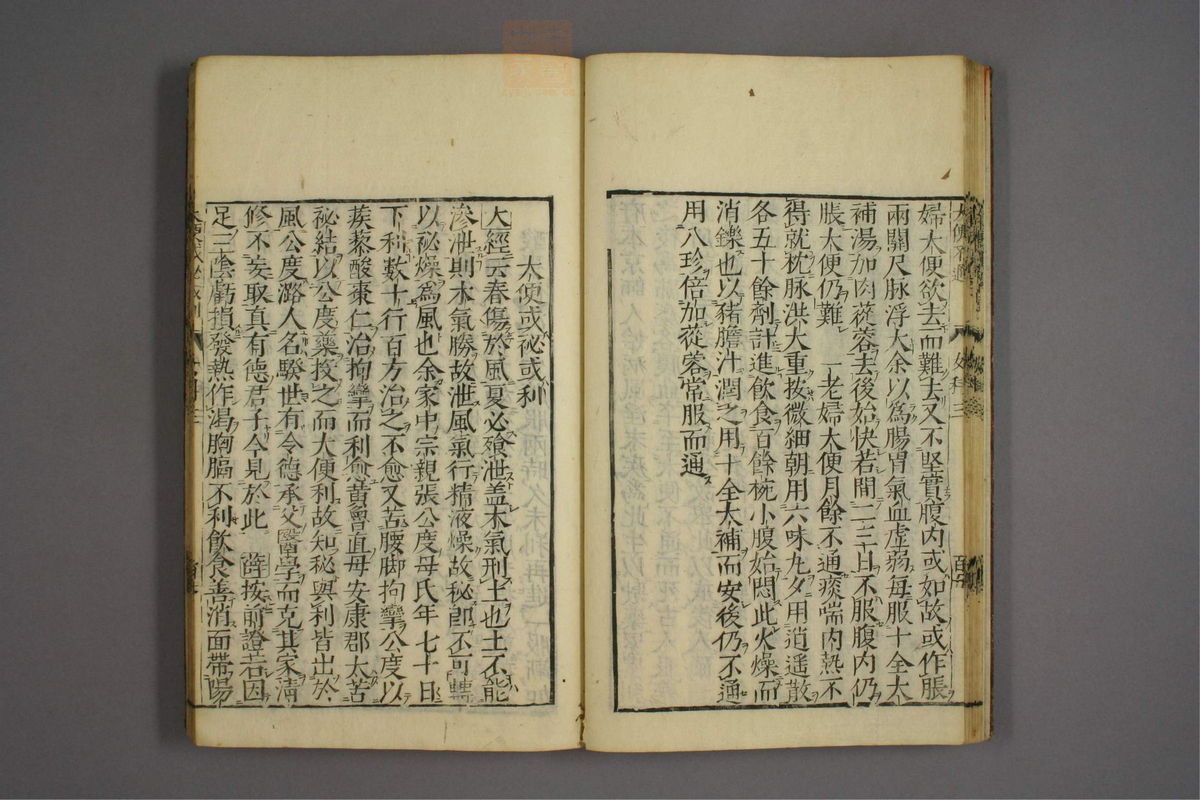 婦大便欲去而難去又不堅實腹内或如故或作脹
兩關尺脉浮大余以爲腸胃氣血虛弱每服十全大
補湯加肉蓯蓉去後始快若間二三日不服腹内仍
脹大便仍難 一老婦大便月餘不通痰喘内熱不
得就枕脉洪大重按微細朝用六味丸夕用逍遥散
各五十餘劑計進飲食百餘椀小腹始悶此火燥而
消鑠也以猪膽汁潤之用十全大補而安後仍不通
用八珍倍加蓯蓉常服而通
大便或祕或利
大經云春傷於風夏必飱泄盖木氣刑土也土不能
滲泄則木氣勝故泄風氣行精液燥故秘郎丕可轉
以祕燥為風也余家中宗親張公度母氏年七十日
下利數十行百方治之不愈又苦腰脚拘攣公度以
蒺藜酸棗仁治拘攣而利愈黄魯直母安康郡太苦
祕結以公度藥投之而大便利故知秘與利皆出於
風公度潞人名騤世有令德承父醫學而克其家清
修不妄取真有德君子今見於此 薛按前證若因
足三陰虧損發熱作渴胸膈不利飲食善消面帶陽